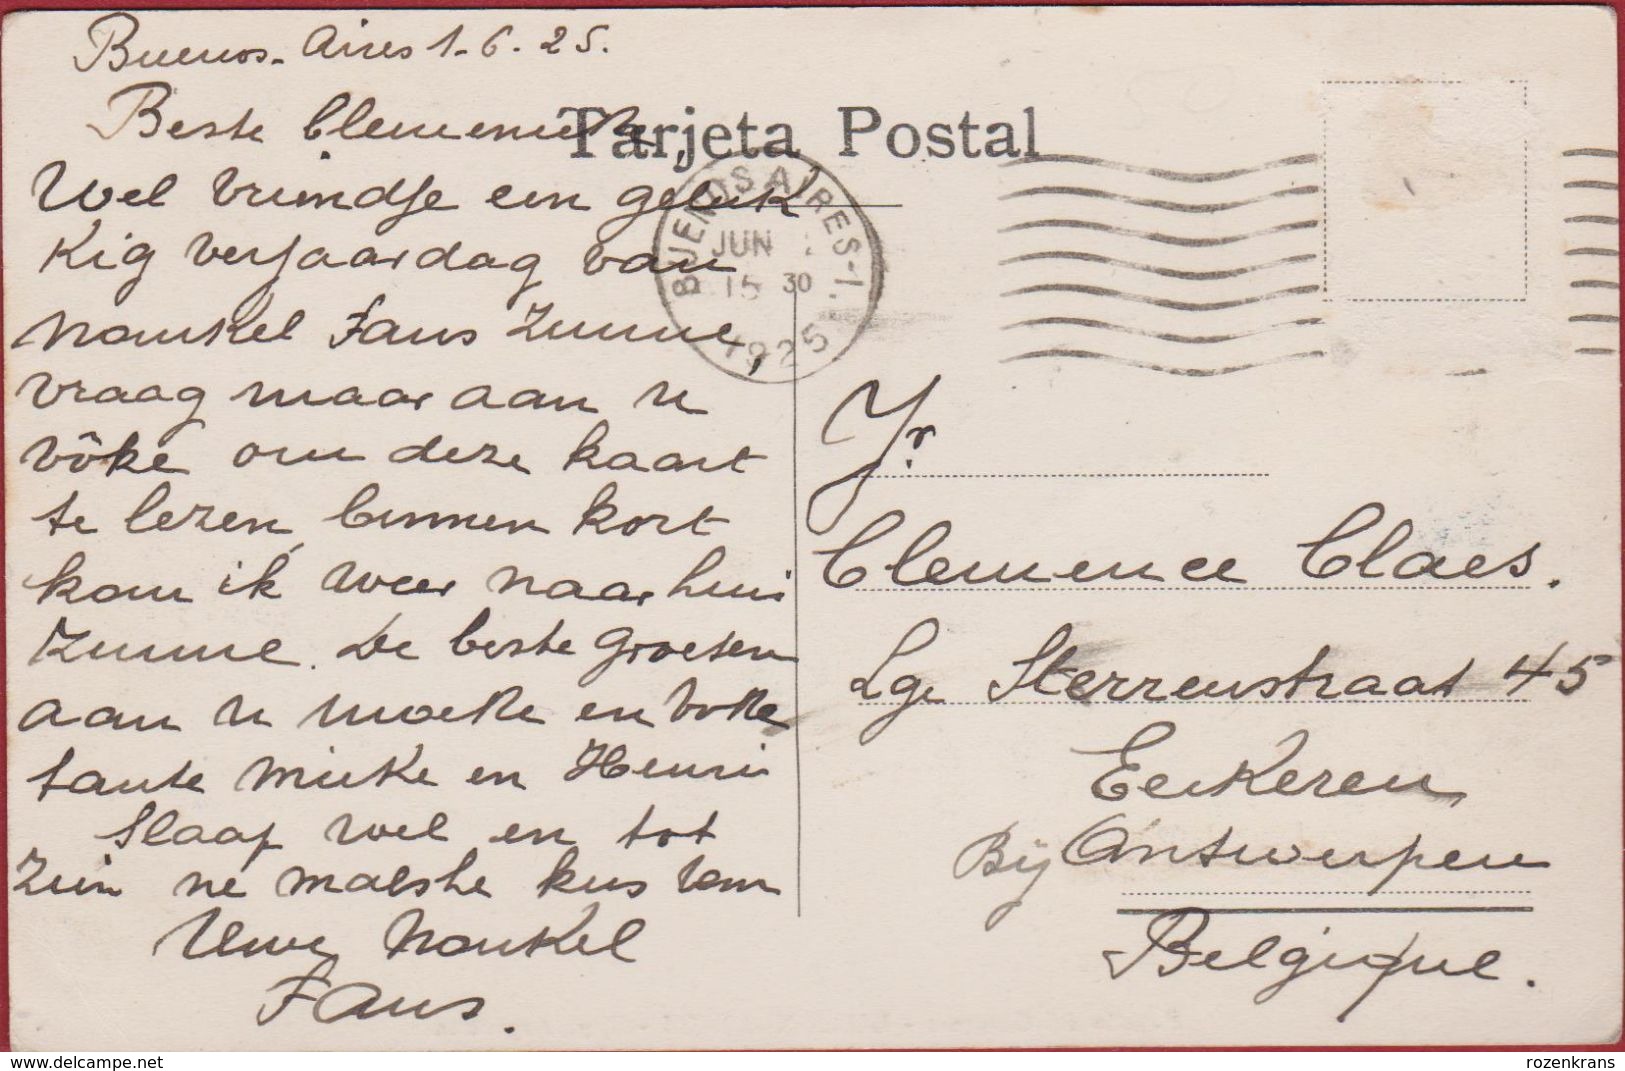 Buenos-Aires 1-6-25.
Beste Clemence
Tarjeta Postal
Wel vriendje een geluk
kig verjaardag van
Nonkel Fans
BUENOS AIRES-1.
JUN
15 30
1925
vraag maar aan u
vôke om deze kaart
te lezen, binnen kort
kom ik weer naar huis
De beste groeten
aan u moeke en voke
tante Mieke en Henri
Slaap wel en tot
Zien ne malshe kus van
Uwe Nonkel
Fans.
Jr.
Clemence Claes.
Lge Sterrenstraat 45
Eeckeren
Bij Antwerpen
Belgique.
delcampe.net
rozenkrans